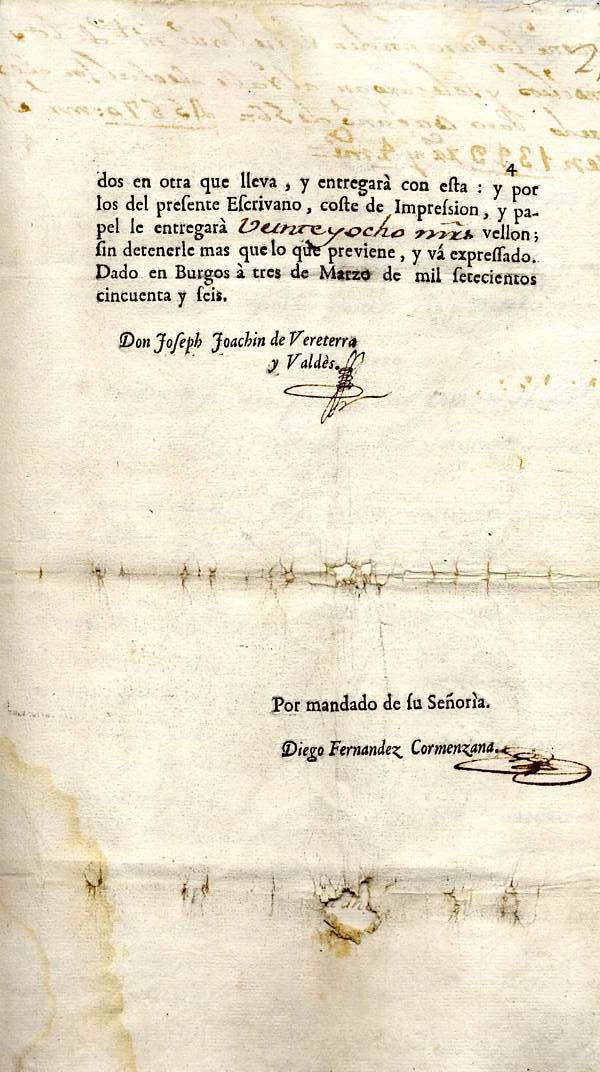 4
dos en otra que lleva , y entregarà con eſta : y por
los del preſente Eſcrivano , coſte de Impreſsion , y pa-
pel le entregarà Veinte y ocho mr̃s vellon;
ſin detenerle mas que lo què previene , y vá expreſſado.
Dado en Burgos à tres de Marzo de mil ſetecientos
cincuenta y ſeis.
Don Joſeph Joachin de Vereterra
y Valdès.
Por mandado de ſu Señorìa.
Diego Fernandez Cormenzana.